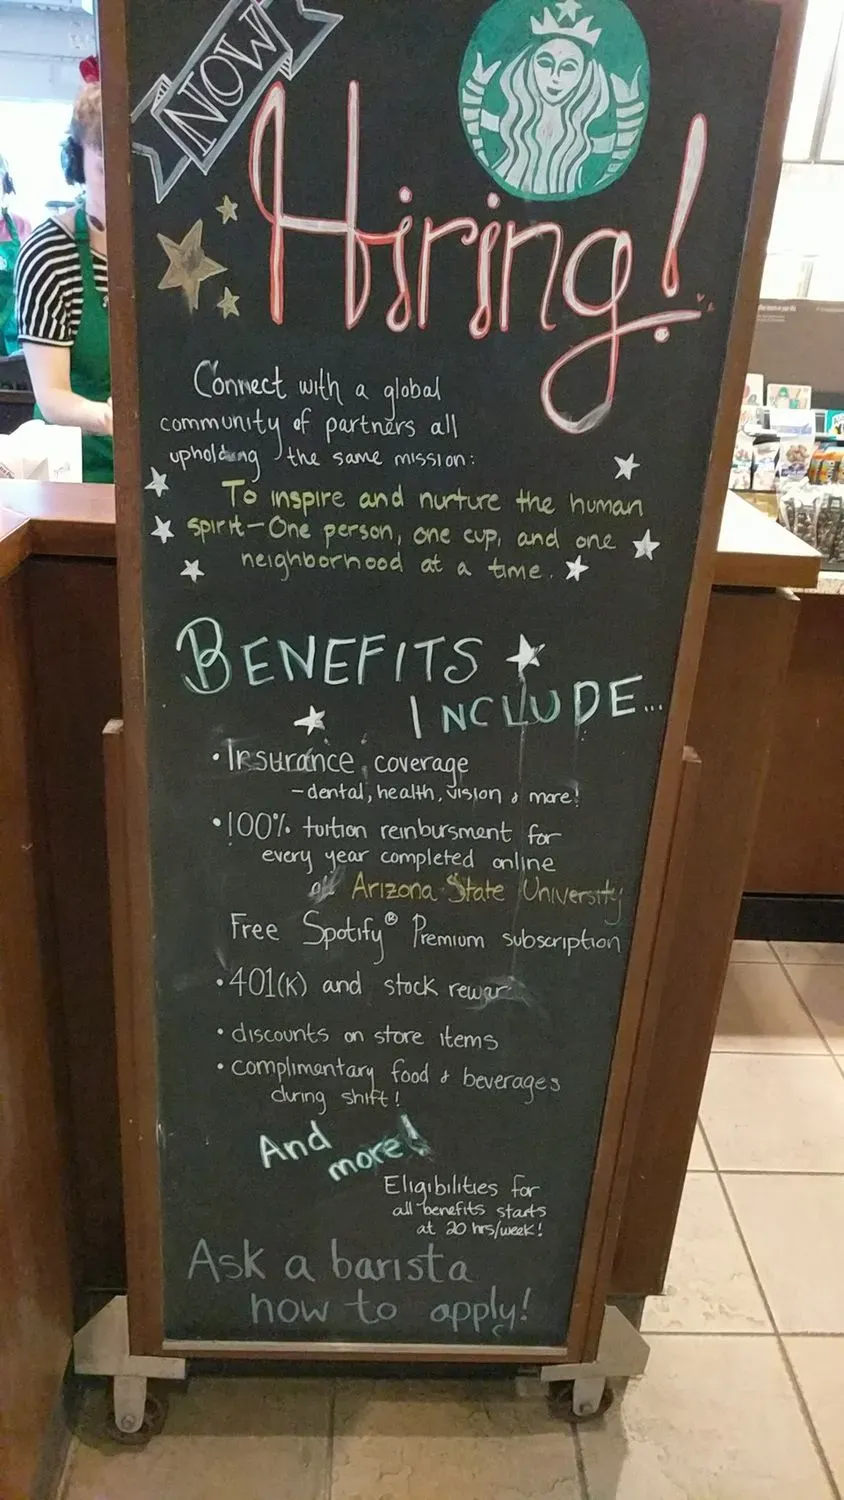 NOW
Hiring!
Connect with a global
community of partners all
upholding the same mission:
To inspire and nurture the human
spirit—One person, one cup, and one
neighborhood at a time.
BENEFITS
INCLUDE...
• Insurance coverage
- dental, health, vision & more!
• 100% tuition reinbursment for
every year completed online
at Arizona State University
Free Spotify® Premium subscription
• 401(K) and stock rewar
• discounts on store items
• complimentary food & beverages
during shift!
And
more!
Eligibilities for
all benefits starts
at 20 hrs/week!
Ask a barista
how to apply!